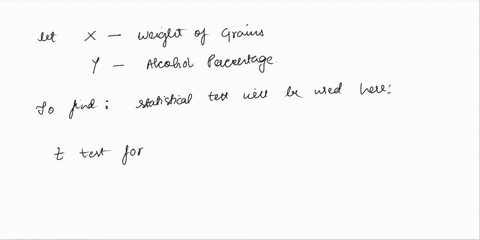 let X — Weight of Grains
Y — Alcohol Percentage.
To find : statistical test will be used here:
t test for